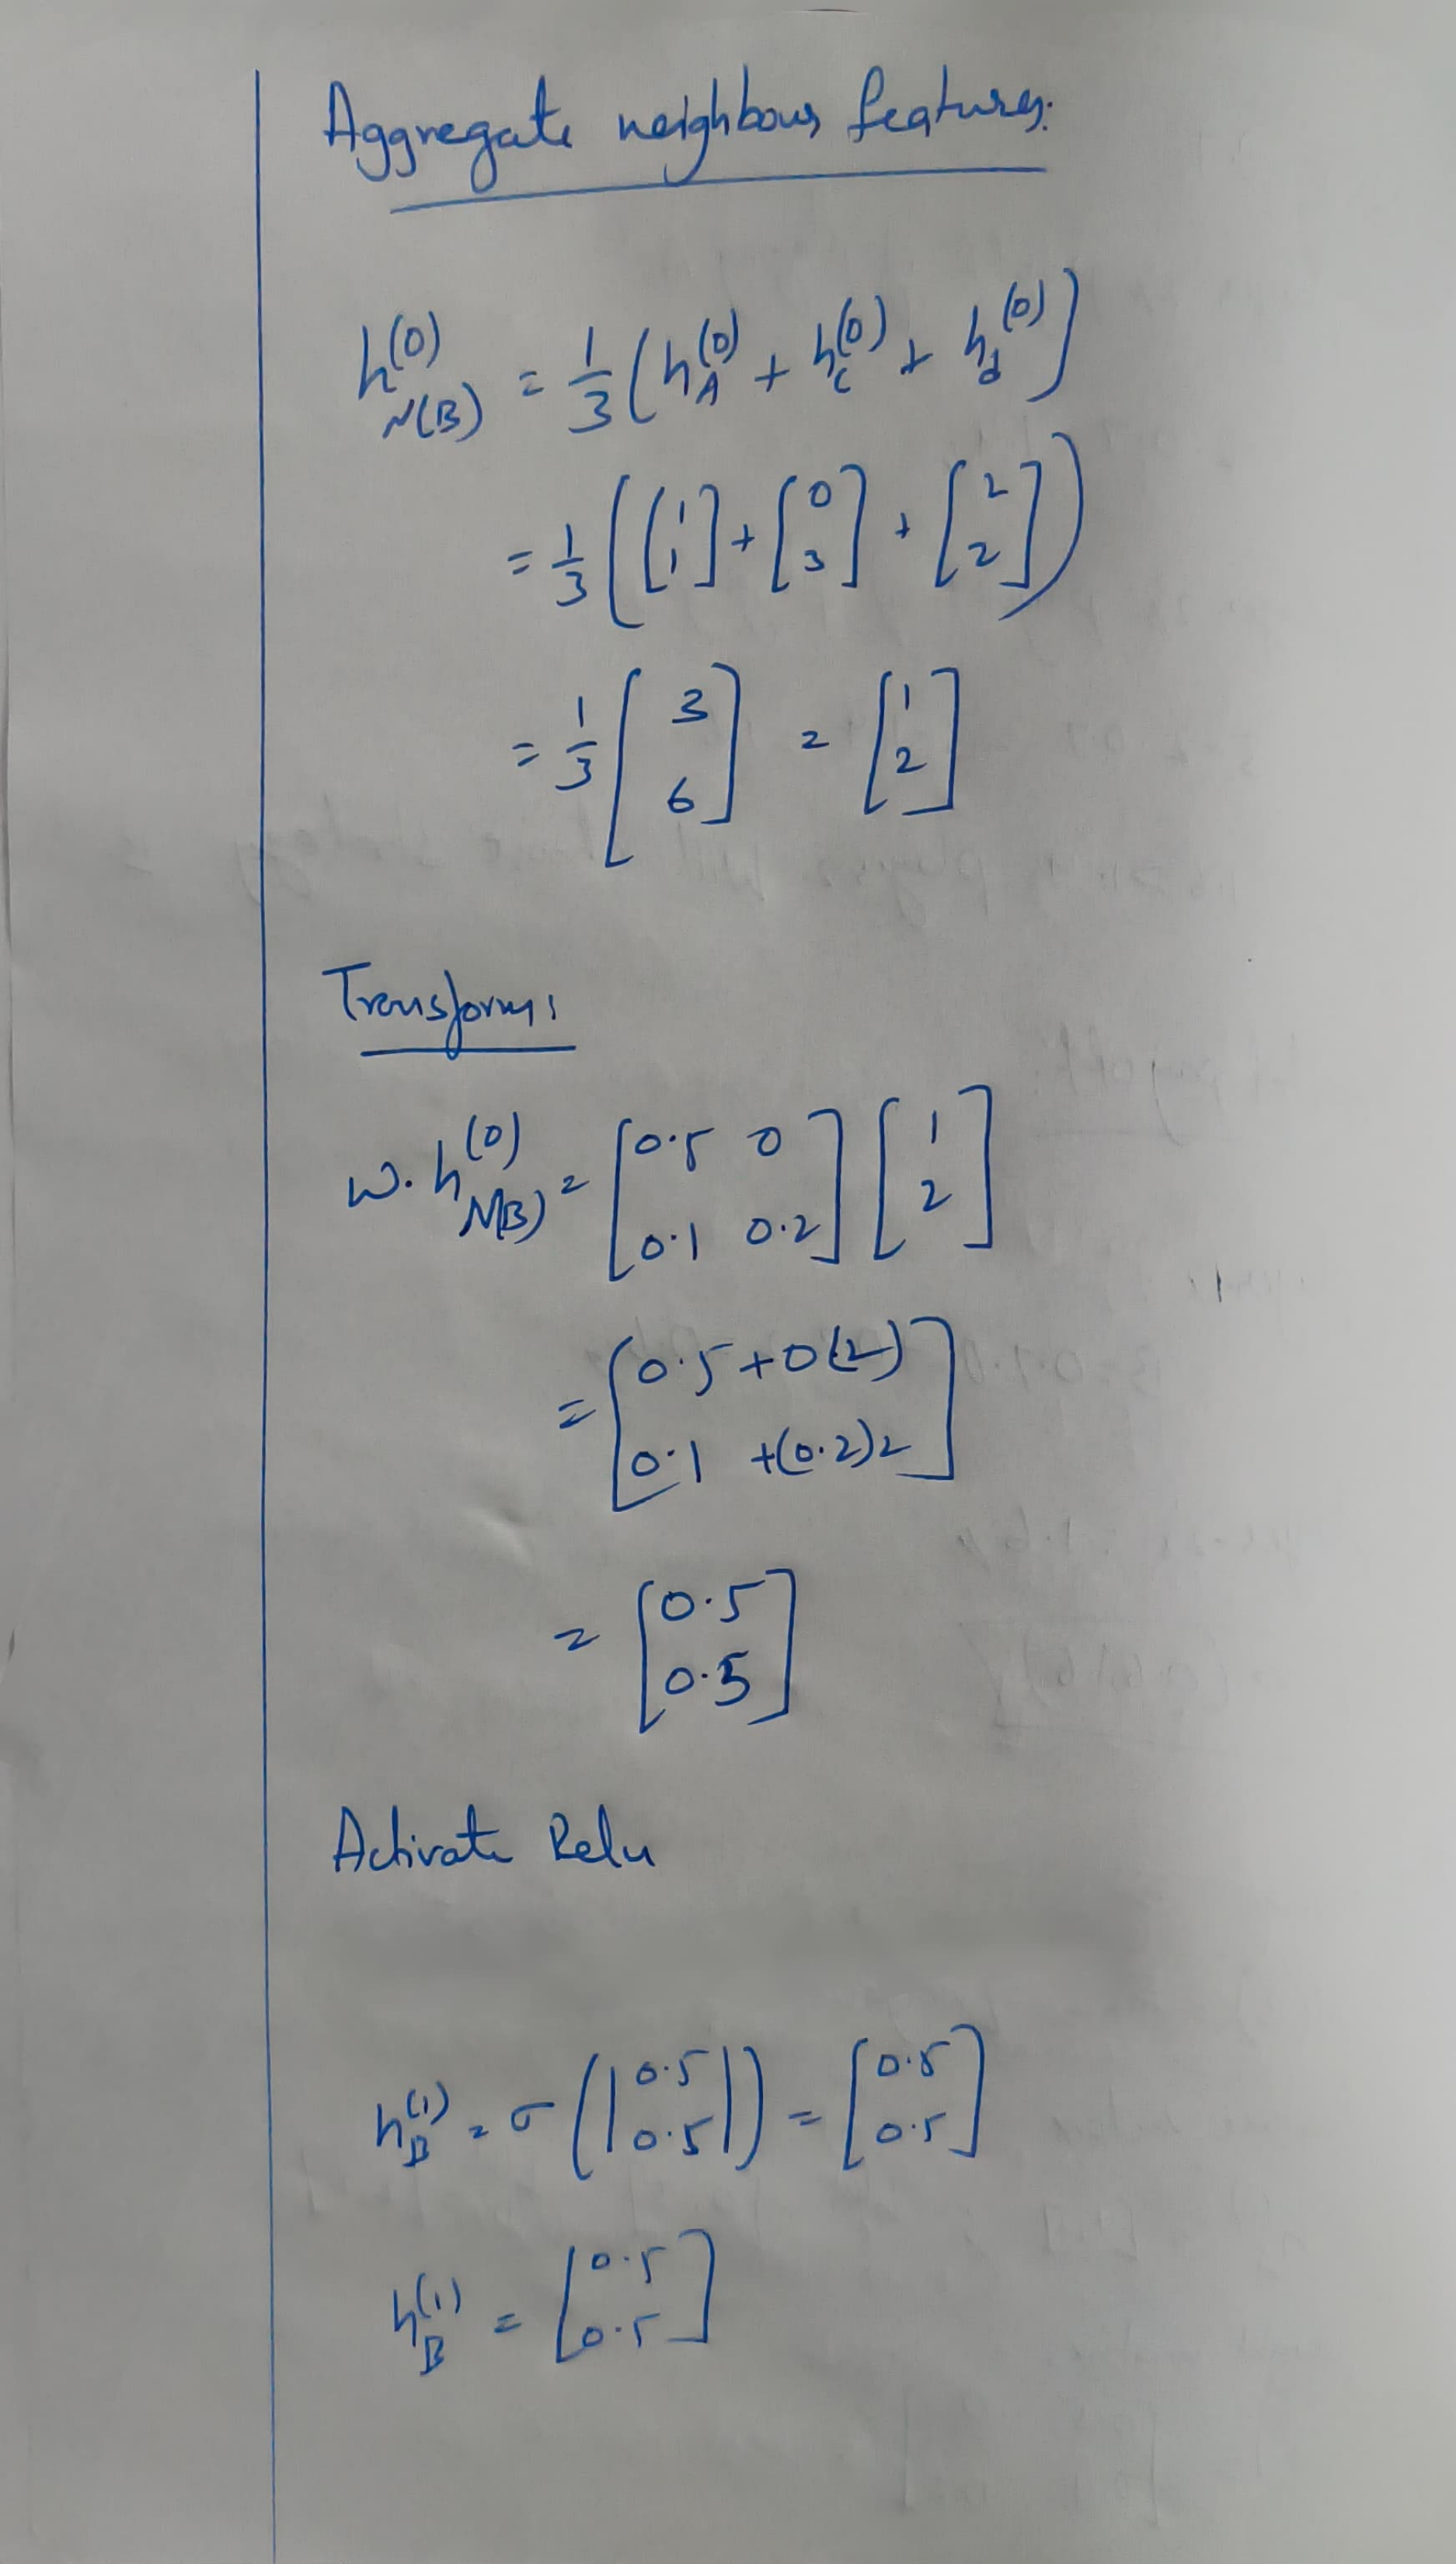 Aggregate neighbours features:
h^(0)_N(B) = 1/3 (h_A^(0) + h_C^(0) + h_d^(0)]
= 1/3 ([1 1] + [0 3] + [2 2])
= 1/3 [3 6] = [1 2]
Transform:
W. h^(0)_N(B) = [0.5 0 0.1 0.2] [1 2]
= [0.5 + 0(2) 0.1 + (0.2)2]
= [0.5 0.5]
Activate Relu
h_B^(1) = σ(|0.5 0.5|) = [0.5 0.5]
h_B^(1) = [0.5 0.5]